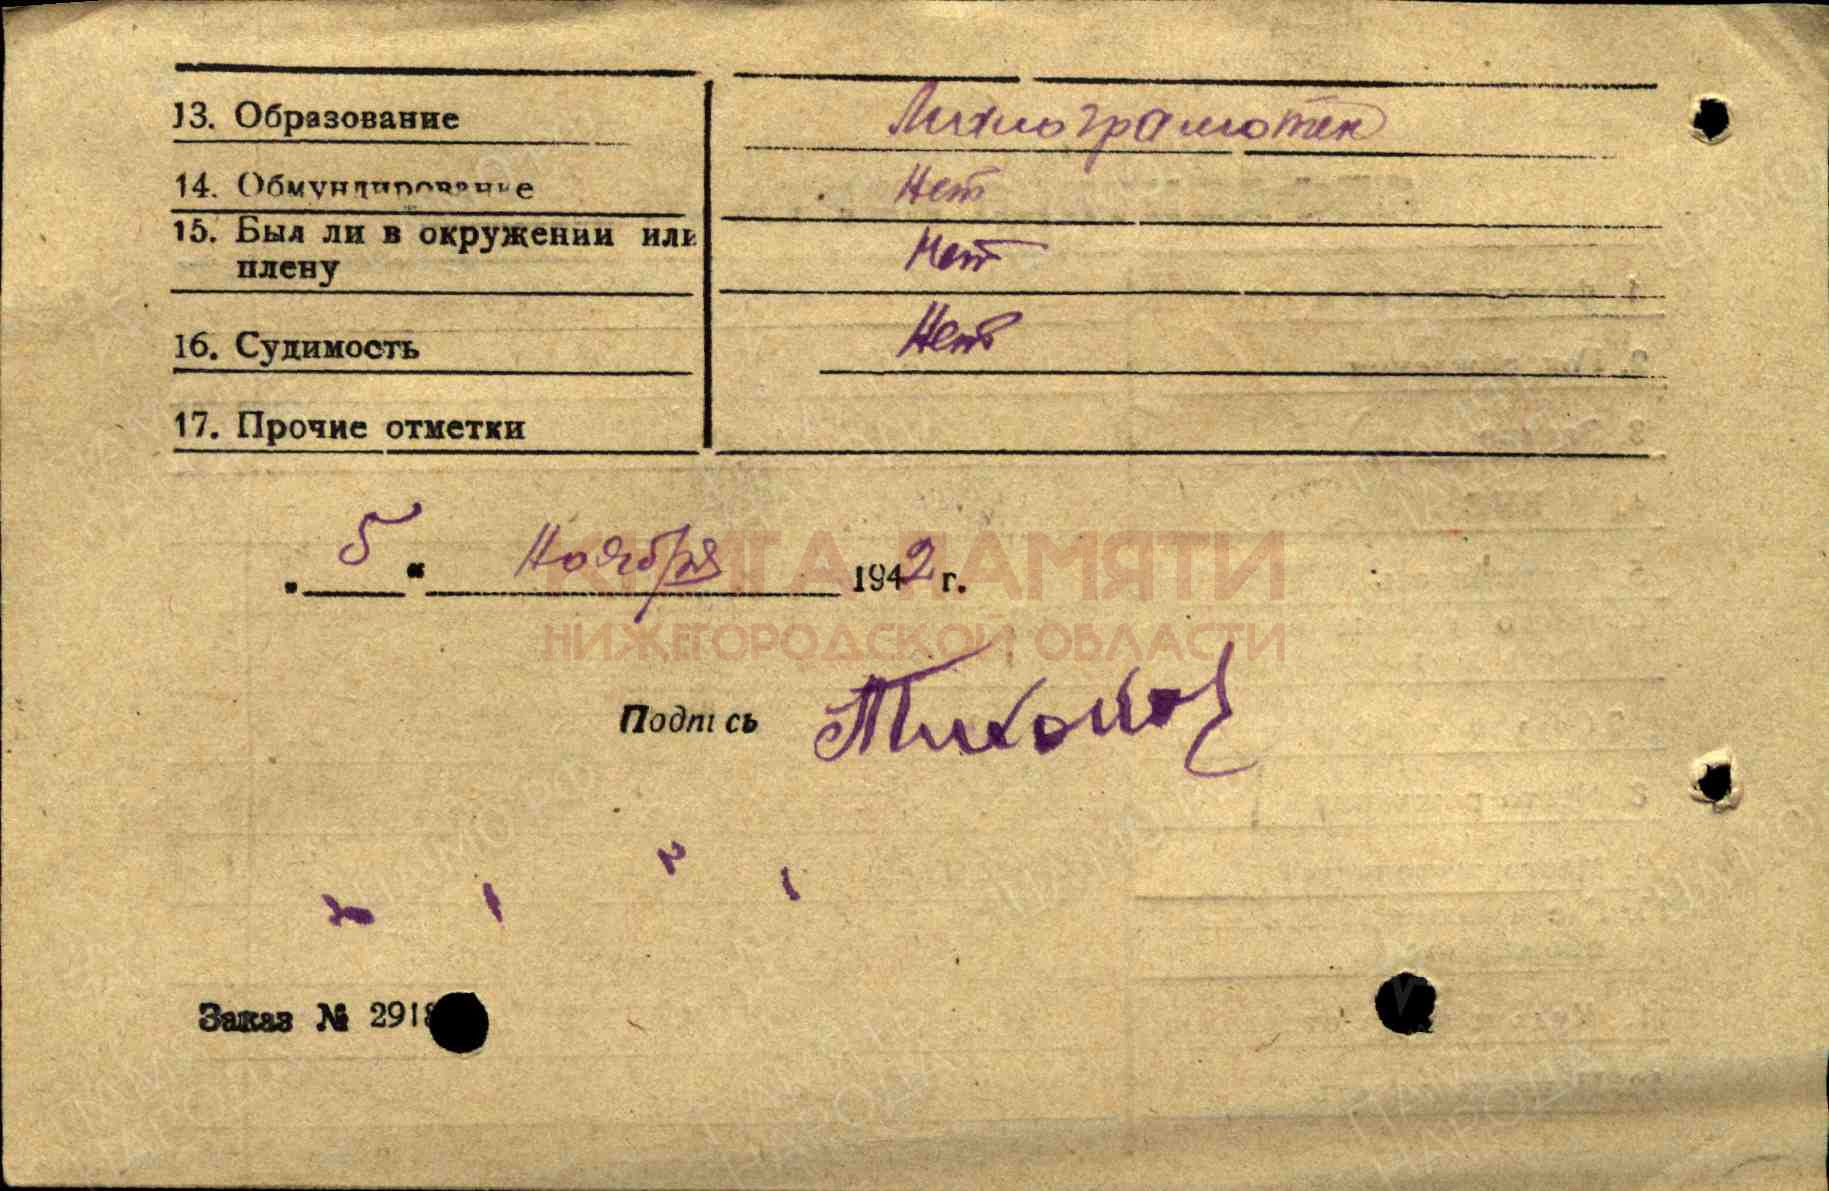 13. Образование Малограмотен
14. Обмундирование Нет
15. Был ли в окружении или
плену Нет
16. Судимость Нет
17. Прочие отметки
„5“ Ноября 1942 г.
КНИГА ПАМЯТИ
НИЖЕГОРОДСКОЙ ОБЛАСТИ
Подпись Тихонов
Заказ № 2918